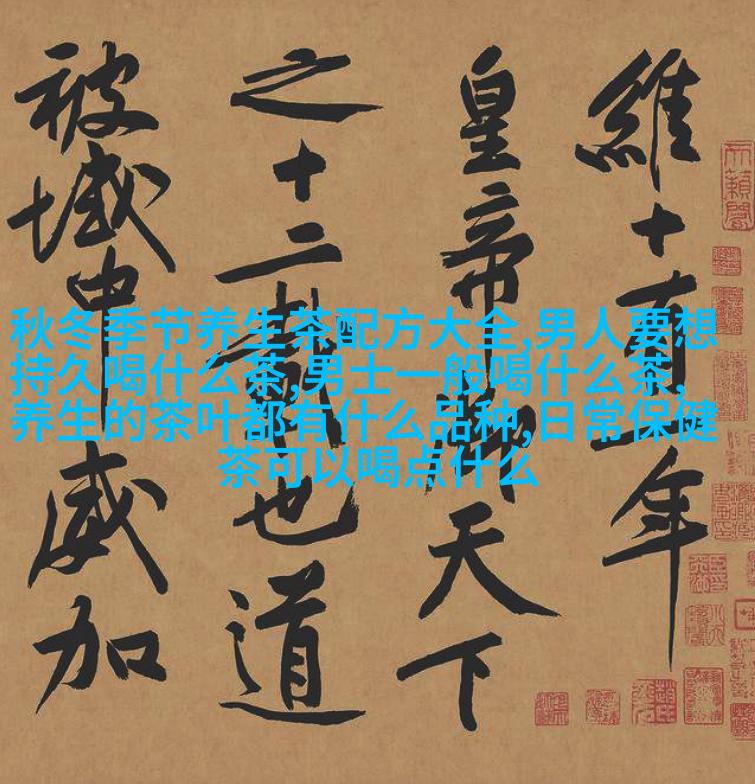 維十有一年
皇帝御天下
之十二載也道
被域中威加
秋冬季节养生茶配方大全,男人要想
持久喝什么茶,男士一般喝什么茶,
养生的茶叶都有什么品种,日常保健
茶可以喝点什么